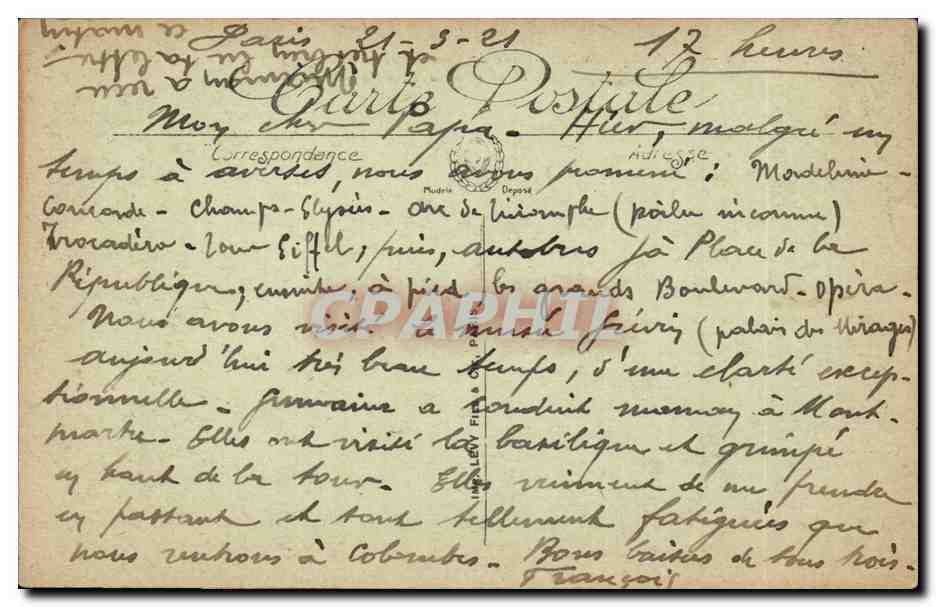 Paris 21-3-21 17 heures
Maman a reçu
et lu ta lettre
ce matin
Carte Postale
Mon cher Papa - Hier, malgré un
Correspondance Adresse
temps à averses, nous avons promené : Madeleine -
Modèle Déposé
Concorde - Champs-Elysées - Arc de Triomphe (poilu inconnu)
Trocadéro - Tour Eiffel, puis, autobus jà Place de la
République, ensuite, à pied, les grands Boulevard - Opéra -
CPAPHIL
Nous avons visité le musée Grévin (palais des Mirages)
aujourd'hui très beau temps, d'une clarté excep-
tionnelle - Germaine a conduit maman à Mont-
martre - Elles ont visité la basilique et grimpé
en haut de la tour - Elles viennent de me prendre
IMP. LEVY FILS & Cie, PARIS
en passant et sont tellement fatiguées que
nous rentrons à Colombes - Bons baisers de tous trois -
François